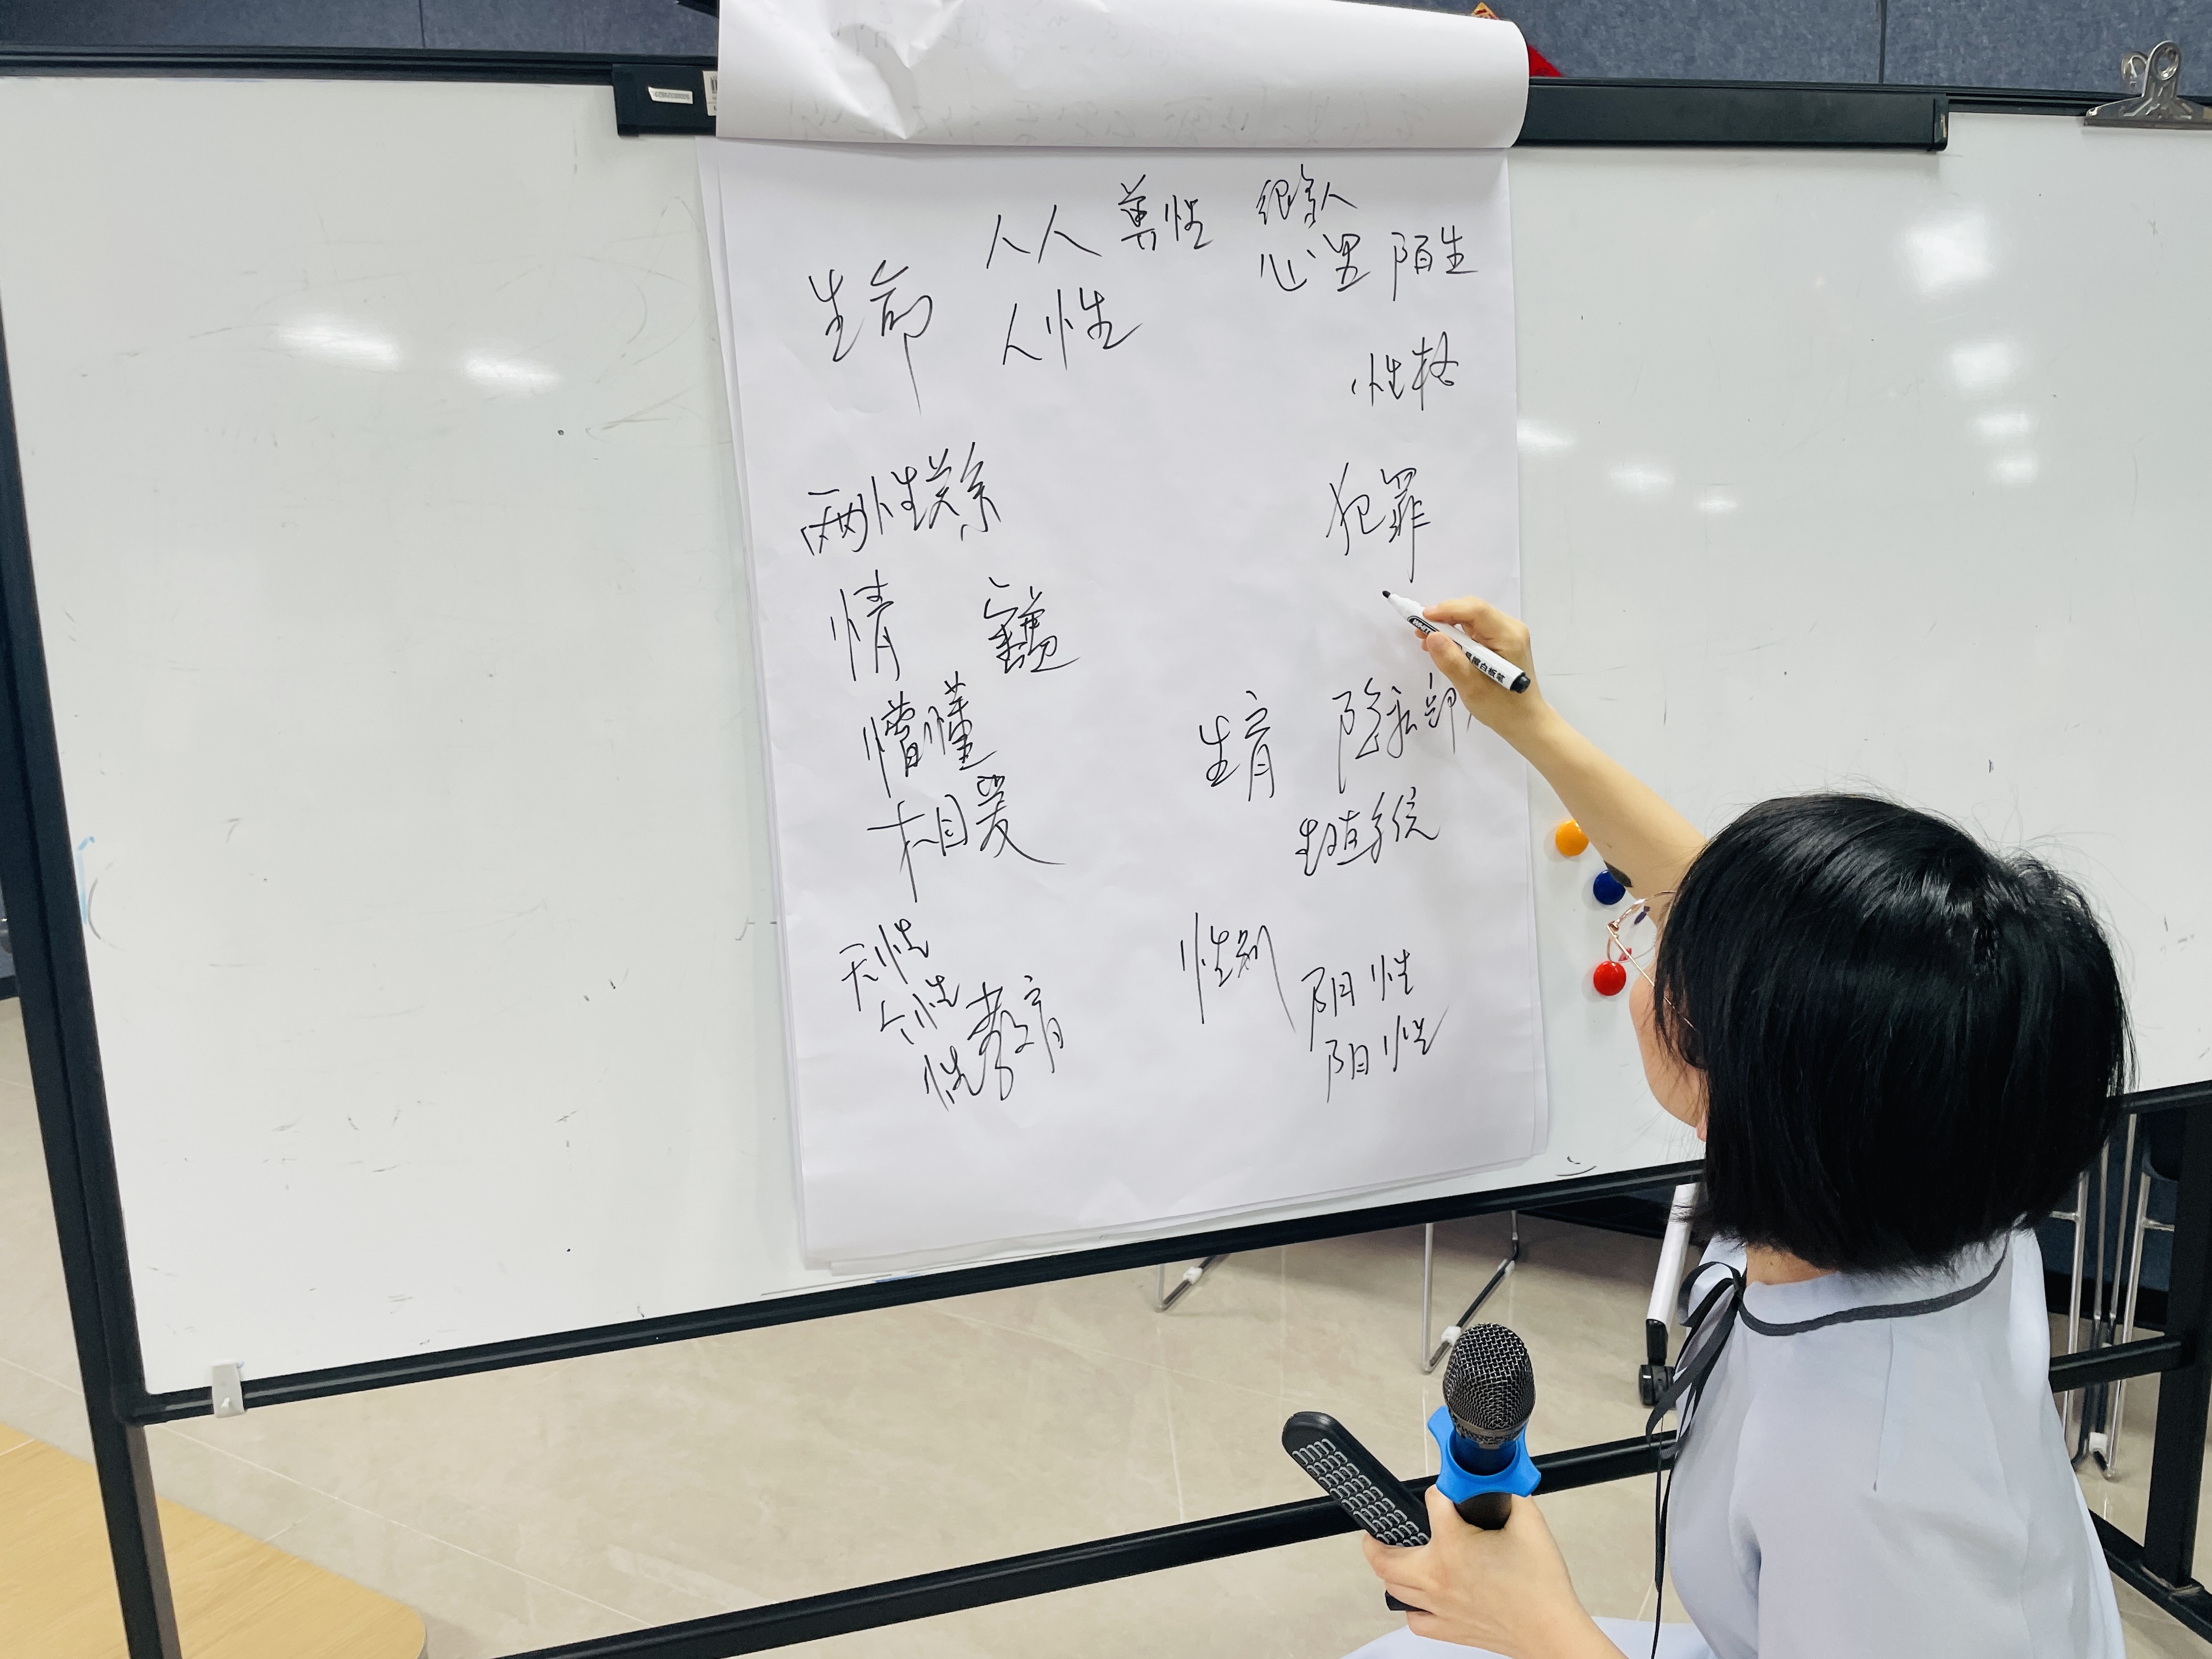 人人 兽性 很多人
生命 人性 心里 陌生
性格
两性关系 犯罪
情
懵懂 生育 隐私部
相爱 生殖系统
天性 性别
个性 阴性
性教育 阳性